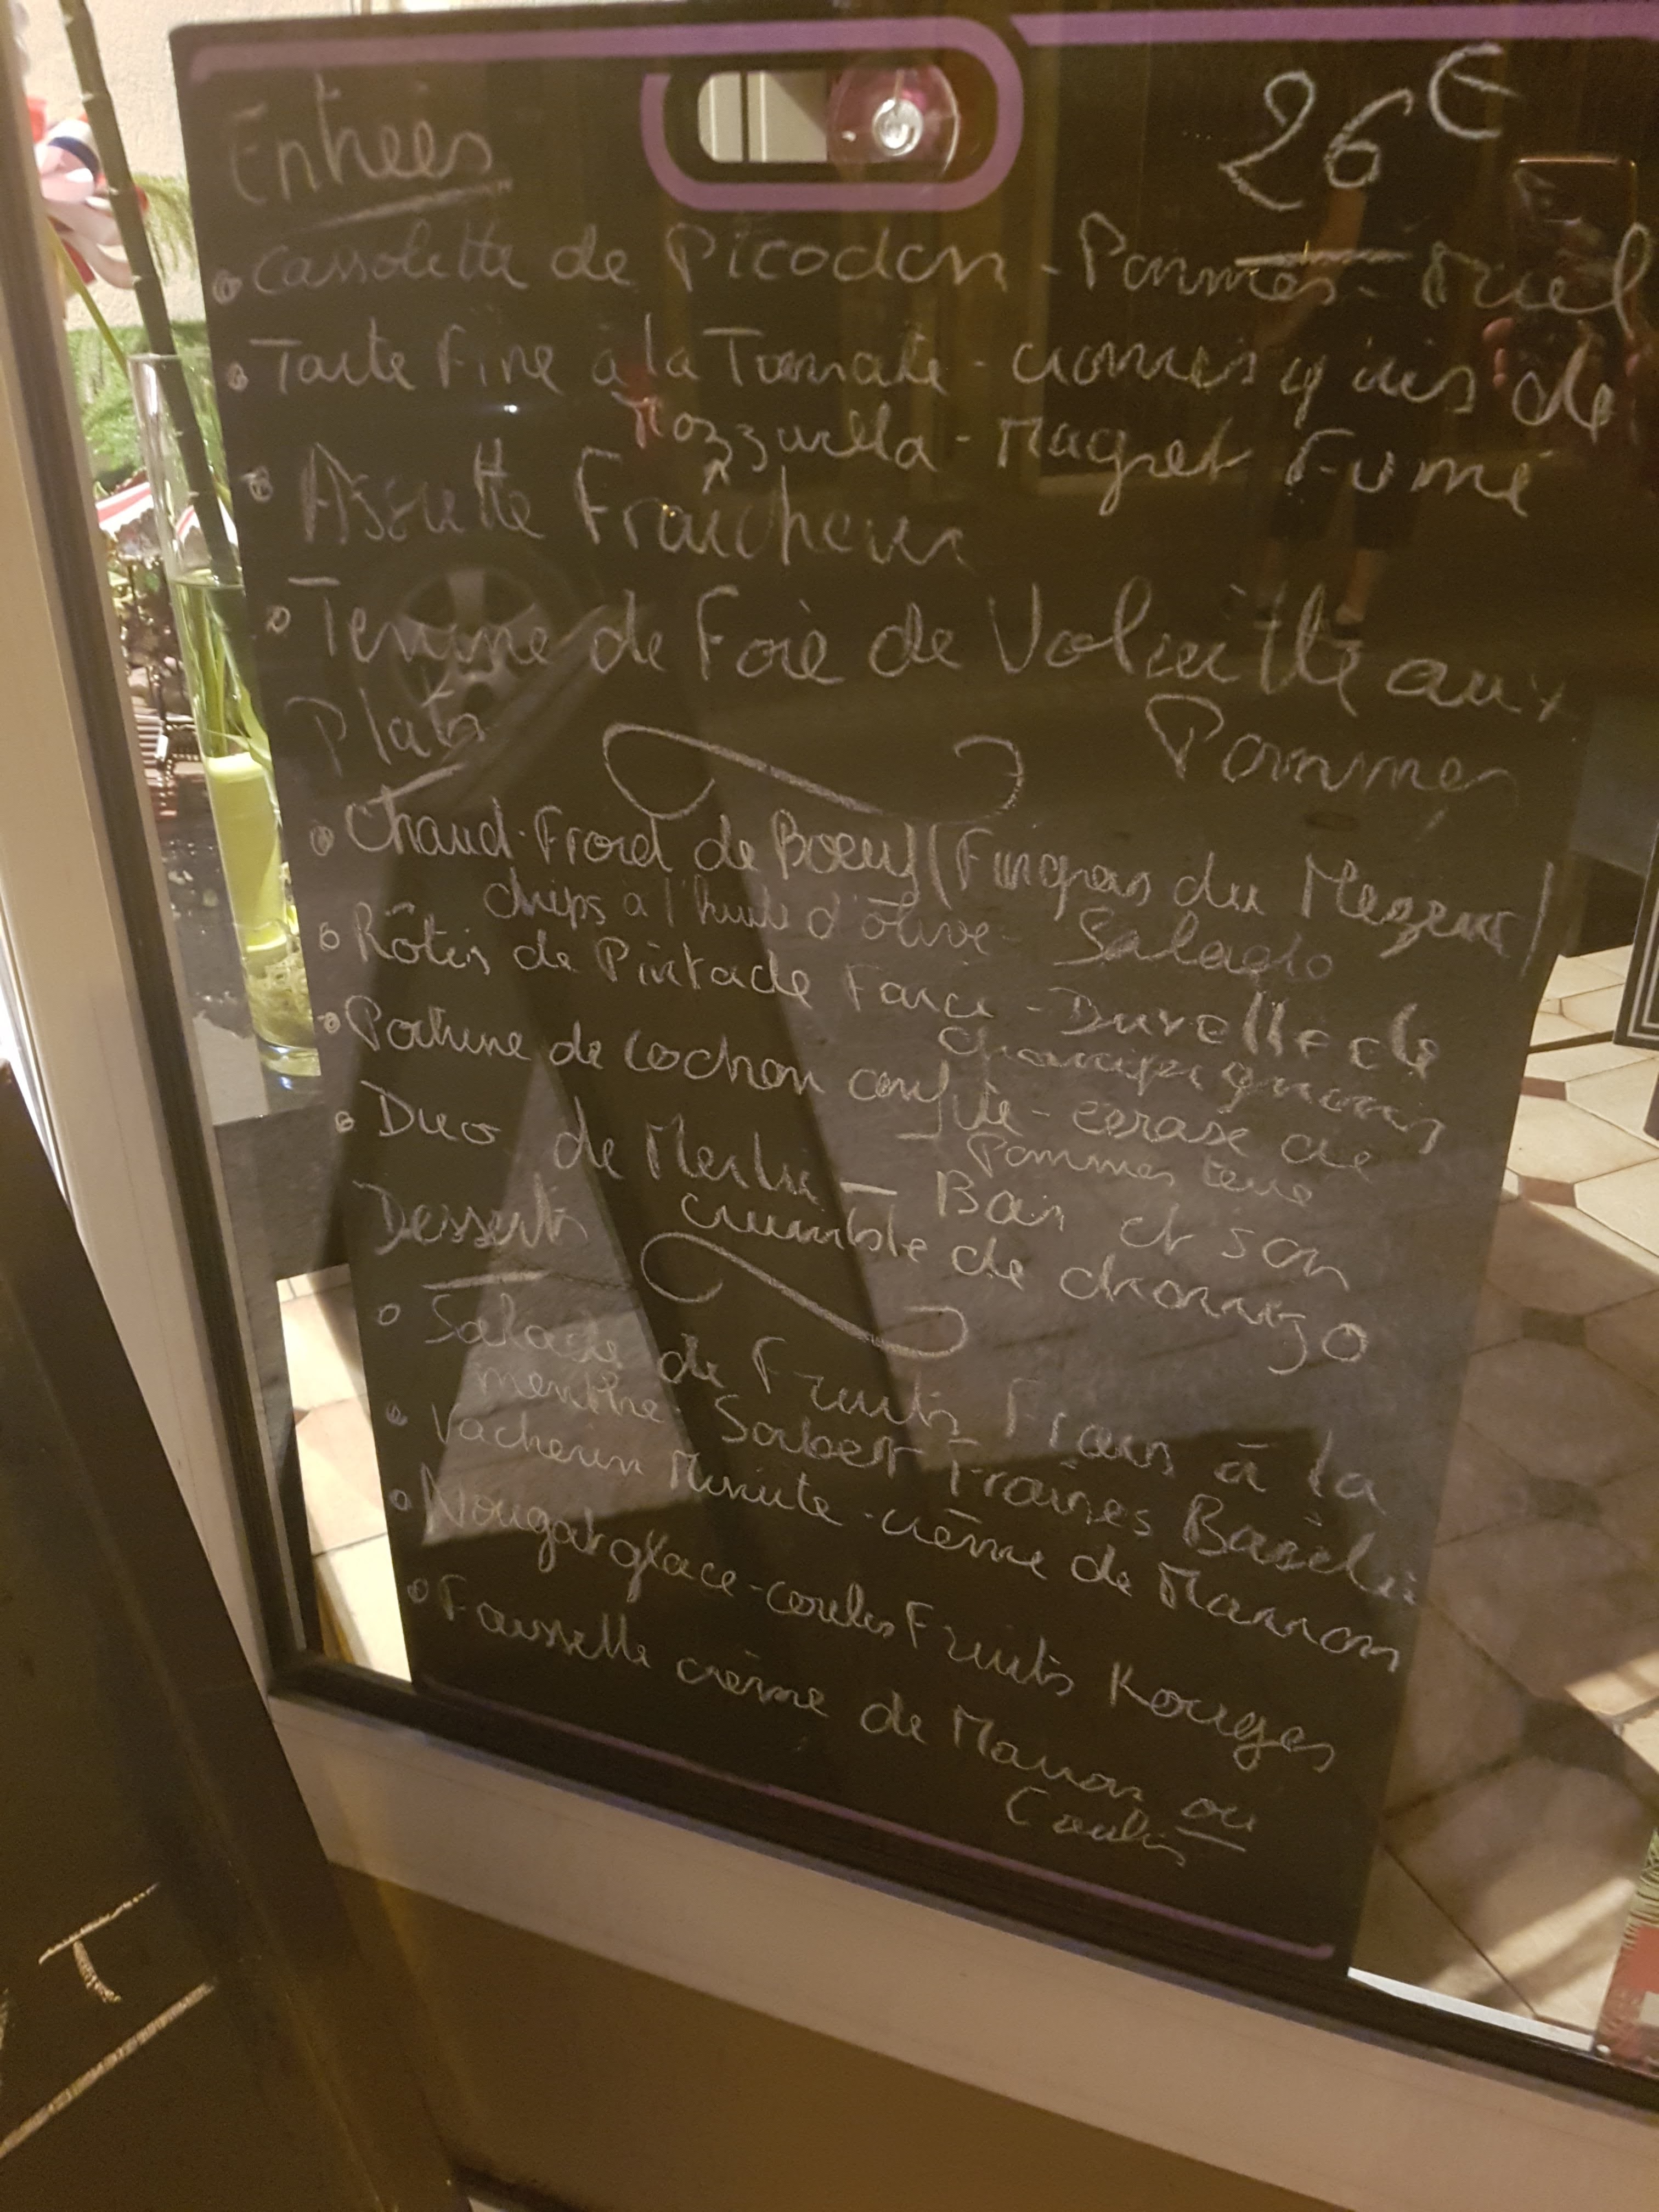 Entrées
26€
Cassolette de Picodon - Pommes - Miel
Tarte Fine à la Tomate - croustillants de
Mozzarella - Magret Fumé
Assiette Fraîcheur
Terrine de Foie de Volaille aux
Pommes
Plats
Chaud-Froid de Boeuf (Fin gras du Mezenc)
chips à l'huile d'olive - Salade
Rôtis de Pintade Farcie - Duxelle de
champignons
Poitrine de Cochon confite - écrasé de
Pommes terre
Duo de Merlu - Bar et son
crumble de chorizo
Desserts
Salade de Fruits Frais à la
menthe Sorbet Fraises Basilic
Vacherin Minute - crème de Marron
Nougat glace - coulis Fruits Rouges
Faisselle crème de Marron ou
Coulis
T